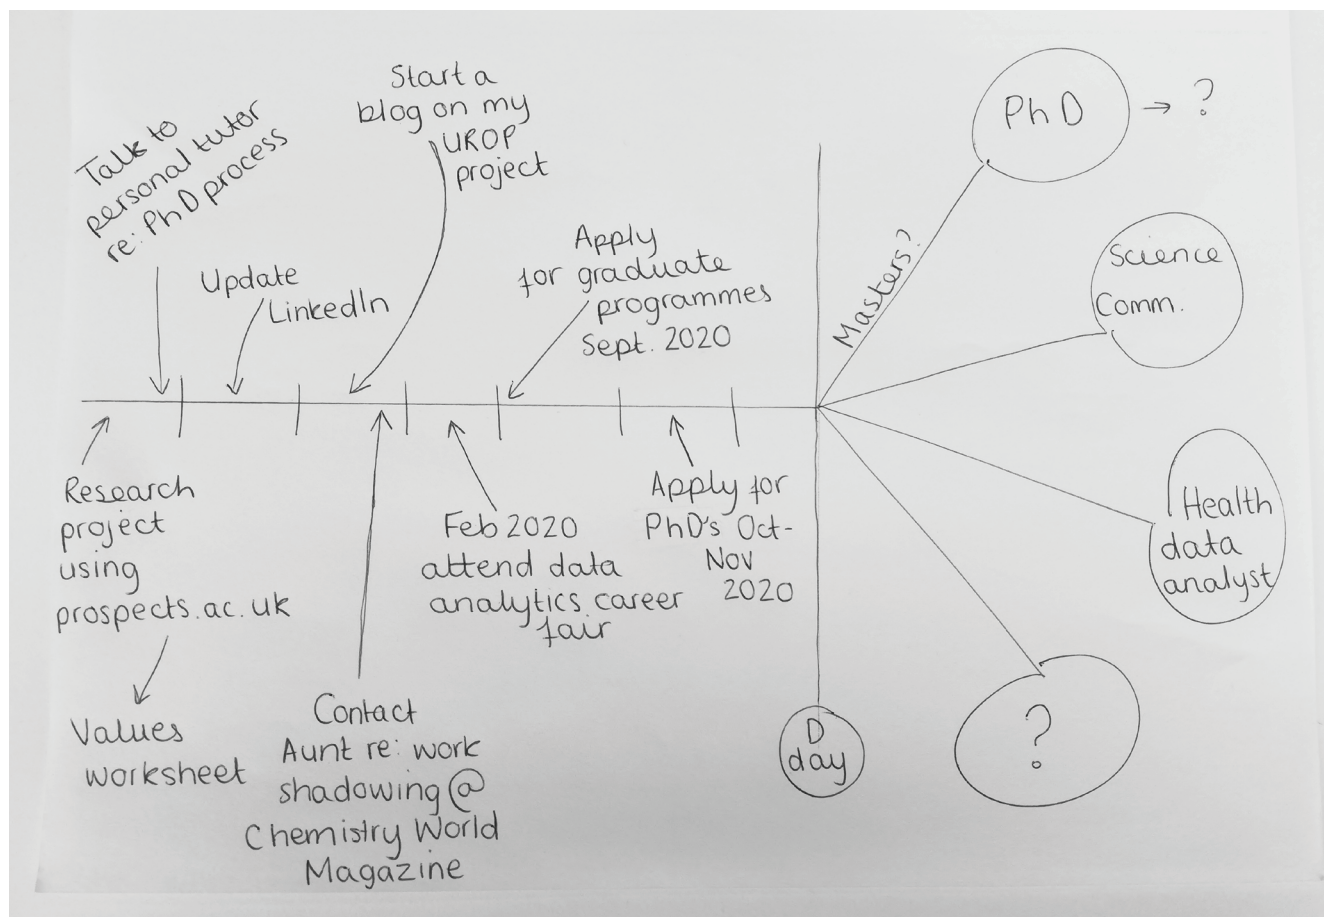 Talk to
personal tutor
re: PhD process
Update
LinkedIn
Start a
blog on my
UROP
project
Apply
for graduate
programmes
Sept. 2020
Research
project
using
prospects.ac.uk
Values
worksheet
Contact
Aunt re: work
shadowing @
Chemistry World
Magazine
Feb 2020
attend data
analytics career
fair
Apply for
PhD's Oct-
Nov
2020
D
day
Masters?
PhD → ?
Science
Comm.
Health
data
analyst
?